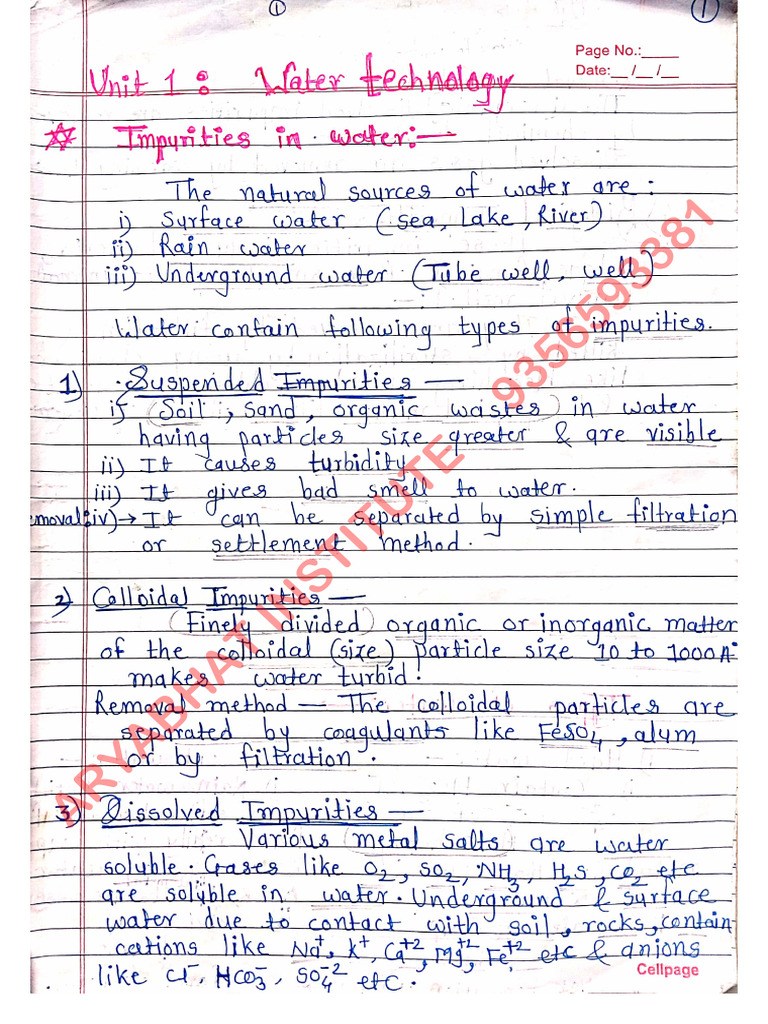 1
1
Page No.:____
Date:__ /__ /__
Unit 1 : Water technology
☆ Impurities in water:—
The natural sources of water are:
i) Surface water (sea, Lake, River)
ii) Rain water
iii) Underground water (Tube well, well)
Water contain following types of impurities.
1) Suspended Impurities —
i) Soil, sand, organic wastes in water
having particles size greater & are visible
ii) It causes turbidity
iii) It gives bad smell to water.
emoval: iv) → It can be separated by simple filtration
or settlement method.
2) Colloidal Impurities —
(Finely divided) organic or inorganic matter
of the colloidal (size) particle size 10 to 1000A°
makes water turbid.
Removal method — The colloidal particles are
separated by coagulants like FeSO4, alum
or by filtration.
3) Dissolved Impurities —
Various metal salts are water
soluble. Gases like O2, SO2, NH3, H2S, CO2 etc
are soluble in water. Underground & surface
water due to contact with soil, rocks, contain
cations like Na+, K+, Ca+2, Mg+2, Fe+2 etc & anions
like Cl-, HCO3-, SO4-2 etc.
Cellpage
ARYABHAT INSTITUTE 9356593381